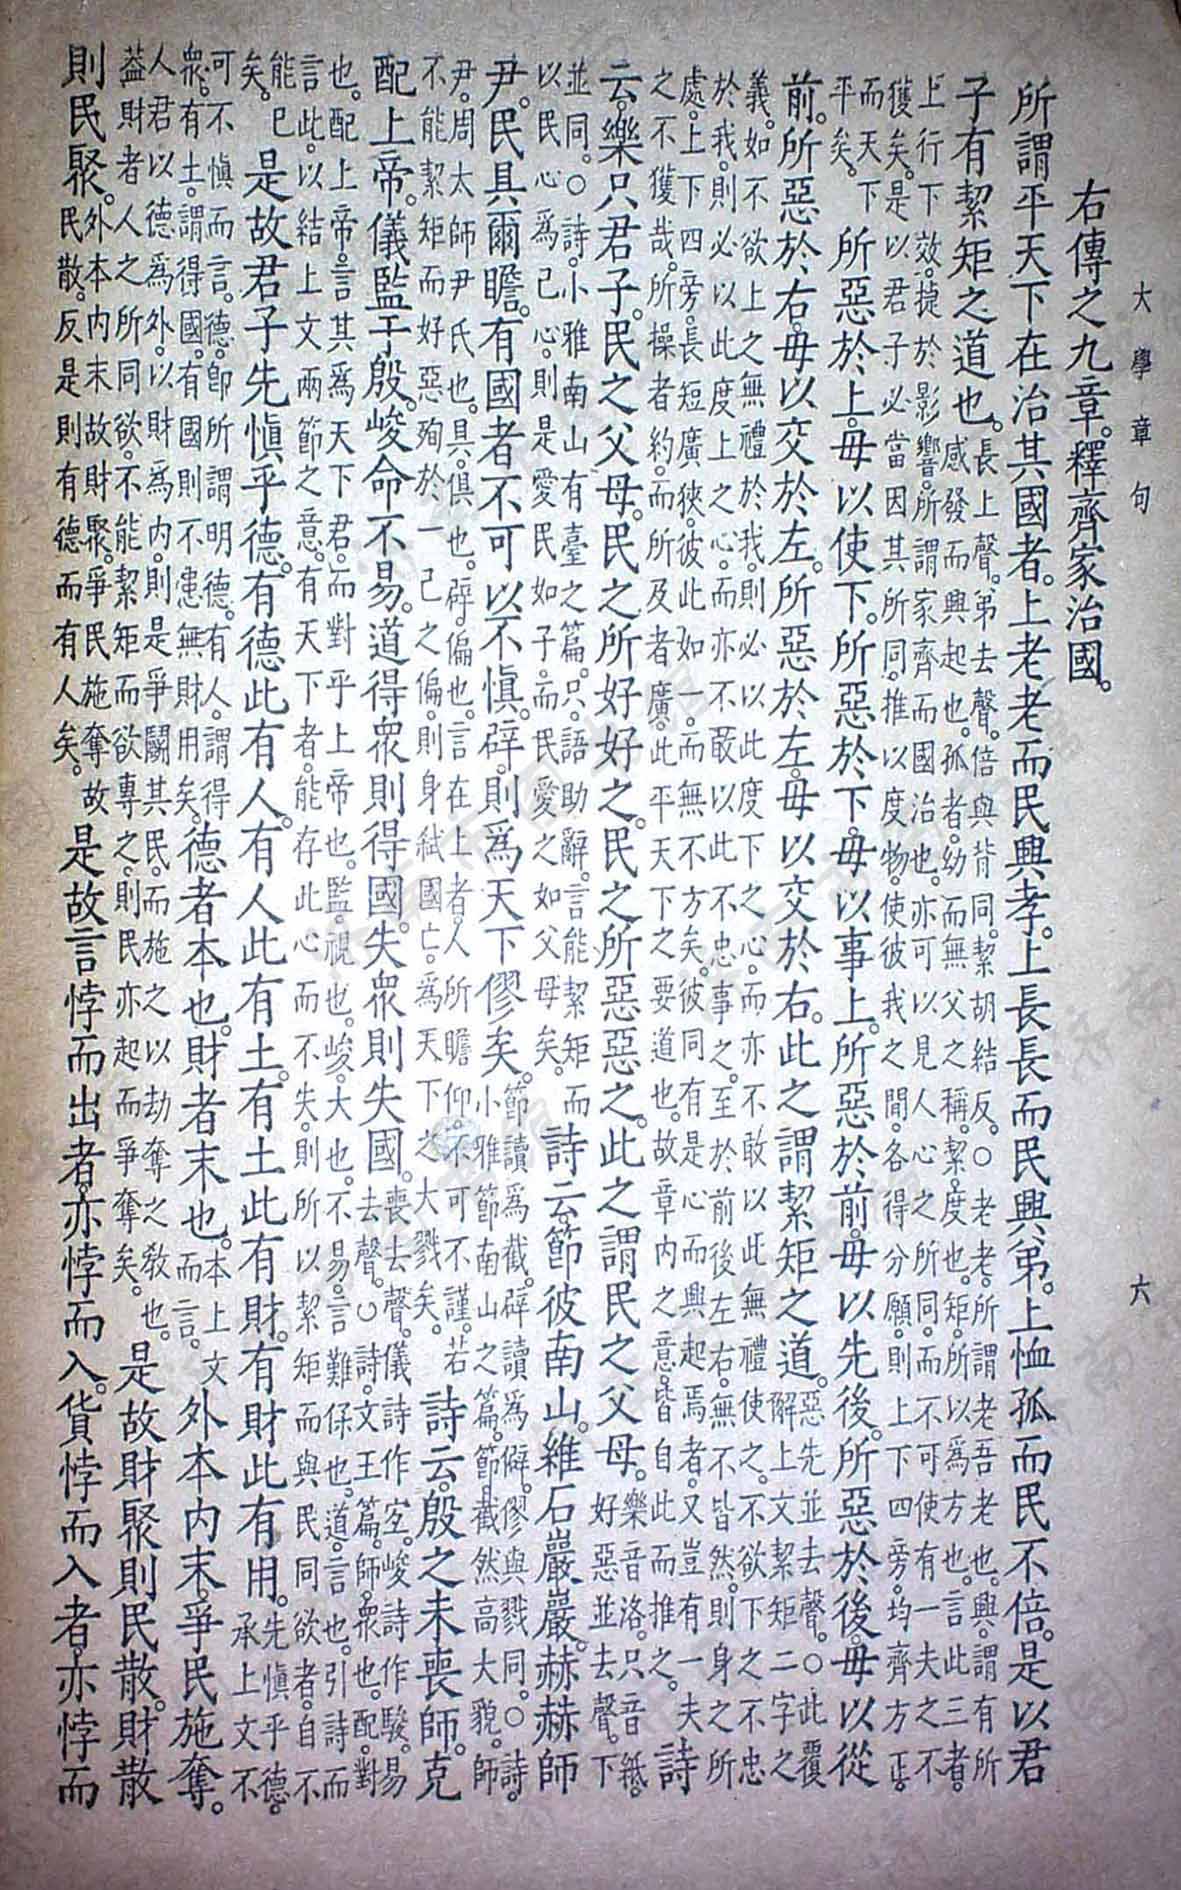 大學章句 六
右傳之九章。釋齊家治國。
所謂平天下在治其國者。上老老而民興孝。上長長而民興弟。上恤孤而民不倍。是以君
子有絜矩之道也。
長上聲。弟去聲。倍與背同。絜胡結反。○老老。所謂老吾老也。興。謂有所
感發而興起也。孤者。幼而無父之稱。絜。度也。矩。所以爲方也。言此三者。
上行下效。捷於影響。所謂家齊而國治也。亦可以見人心之所同。而不可使有一夫之不
獲矣。是以君子必當因其所同。推以度物。使彼我之間。各得分願。則上下四旁。均齊方正。
而天下
平矣。
所惡於上。毋以使下。所惡於下。毋以事上。所惡於前。毋以先後。所惡於後。毋以從
前。所惡於右。毋以交於左。所惡於左。毋以交於右。此之謂絜矩之道。
惡先並去聲。○此覆
解上文絜矩二字之
義。如不欲上之無禮於我。則必以此度下之心。而亦不敢以此無禮使之。不欲下之不忠
於我。則必以此度上之心。而亦不敢以此不忠事之。至於前後左右。無不皆然。則身之所
處。上下四旁。長短廣狹。彼此如一。而無不方矣。彼同有是心而興起焉者。又豈有一夫
之不獲哉。所操者約。而所及者廣。此平天下之要道也。故章內之意。皆自此而推之。
詩
云。樂只君子。民之父母。民之所好好之。民之所惡惡之。此之謂民之父母。
樂音洛。只音紙。
好惡並去聲。下
並同。○詩。小雅南山有臺之篇。只。語助辭。言能絜矩而
以民心爲己心。則是愛民如子。而民愛之如父母矣。
詩云。節彼南山。維石巖巖。赫赫師
尹。民具爾瞻。有國者不可以不慎。辟。則爲天下僇矣。
節讀爲截。辟讀爲僻。僇與戮同。○詩。
小雅節南山之篇。節。截然高大貌。師
尹。周太師尹氏也。具。俱也。辟。偏也。言在上者。人所瞻仰。不可不謹。若
不能絜矩而好惡殉於一己之偏。則身弒國亡。爲天下之大戮矣。
詩云。殷之未喪師。克
配上帝。儀監于殷。峻命不易。道得衆則得國。失衆則失國。
喪去聲。儀詩作宜。峻詩作駿。易
去聲。○詩。文王篇。師。衆也。配。對
也。配上帝。言其爲天下君。而對乎上帝也。監。視也。峻。大也。不易。言難保也。道。言也。引詩而
言此。以結上文兩節之意。有天下者。能存此心而不失。則所以絜矩而與民同欲者。自不
能已
矣。
是故君子先慎乎德。有德此有人。有人此有土。有土此有財。有財此有用。
先慎乎德。
承上文不
可不慎而言。德。卽所謂明德。有人。謂得
衆。有土。謂得國。有國則不患無財用矣。
德者本也。財者末也。
本上文
而言。
外本內末。爭民施奪。
人君以德爲外。以財爲內。則是爭鬬其民。而施之以劫奪之敎也。
蓋財者人之所同欲。不能絜矩而欲專之。則民亦起而爭奪矣。
是故財聚則民散。財散
則民聚。
外本內末故財聚。爭民施奪故
民散。反是則有德而有人矣。
是故言悖而出者。亦悖而入。貨悖而入者。亦悖而